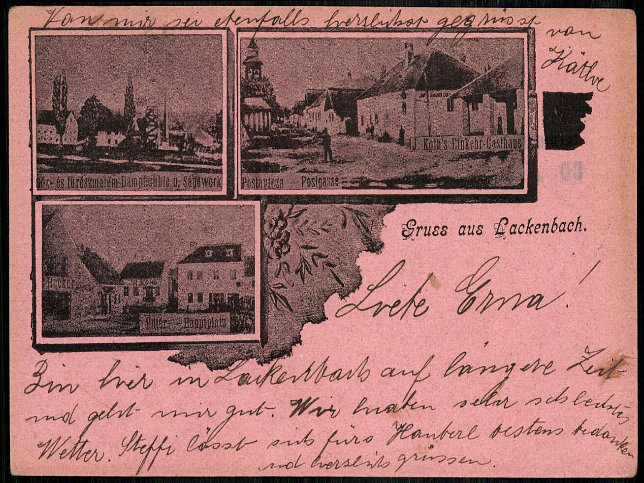 Von mir sei ebenfalls herzlichst gegrüsst
von
Käthe
Dampfmühle u. Sägewerk
Postgasse
Koth's Einkehr-Gasthaus
Hauptplatz
Gruss aus Lackenbach.
Liebe Erna!
Bin hier in Lackenbach auf längere Zeit
und geht mir gut. Wir haben sehr schlechtes
Wetter. Steffi lässt sich fürs Hauberl bestens bedanken
und herzlichst grüssen.